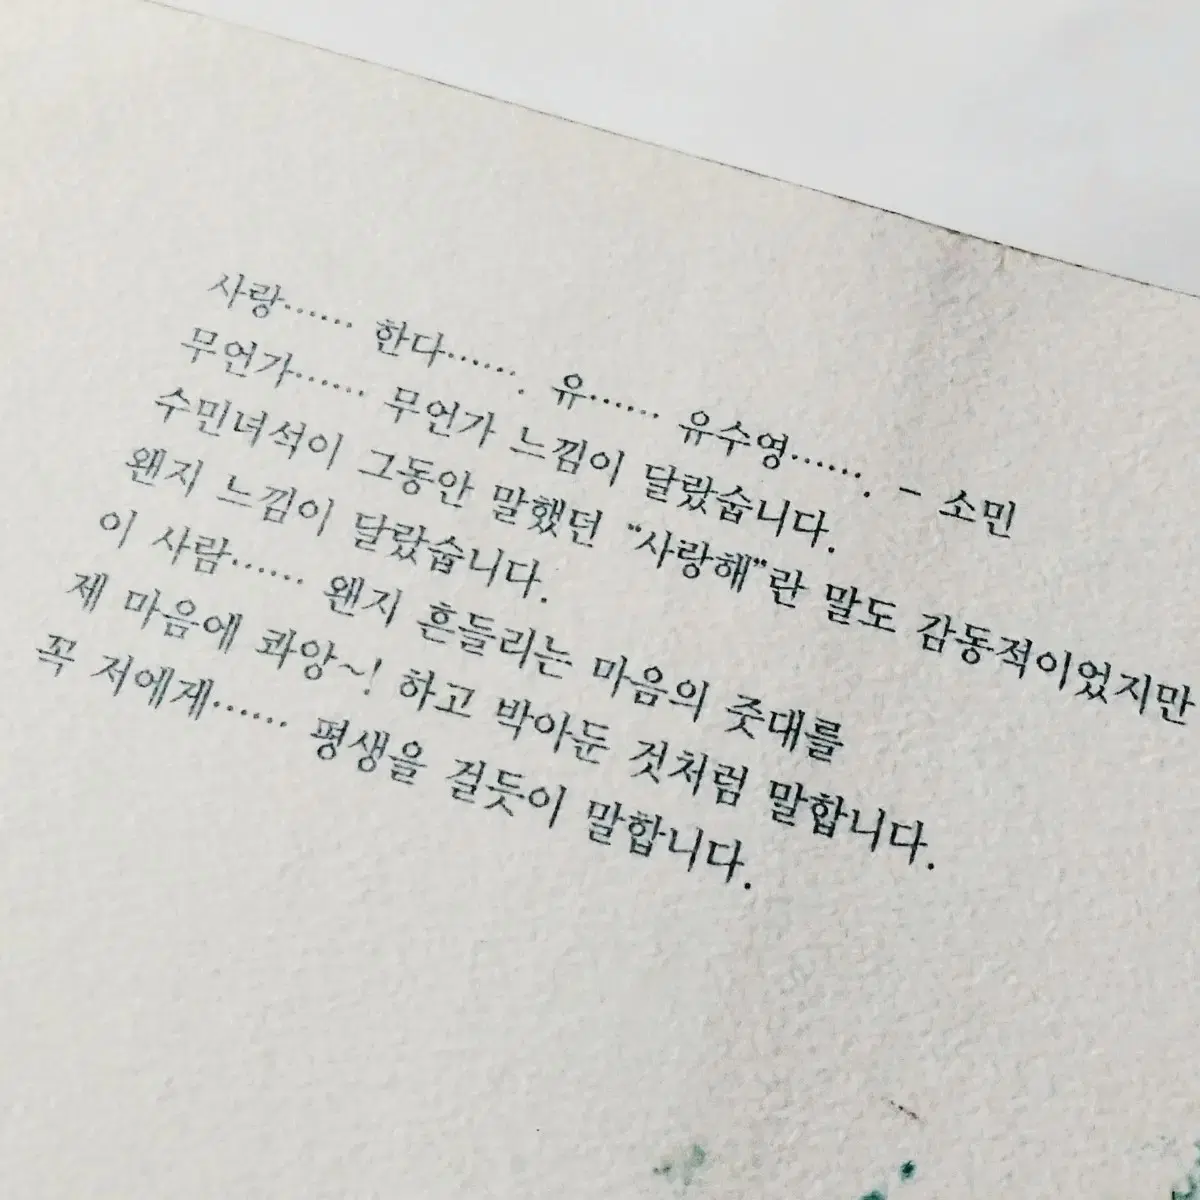 사랑…… 한다……. 유…… 유수영……. - 소민
무언가…… 무언가 느낌이 달랐숩니다.
수민녀석이 그동안 말했던 "사랑해"란 말도 감동적이었지만
왠지 느낌이 달랐숩니다.
이 사람…… 왠지 흔들리는 마음의 줏대를
제 마음에 콰앙~! 하고 박아둔 것처럼 말합니다.
꼭 저에게…… 평생을 걸듯이 말합니다.